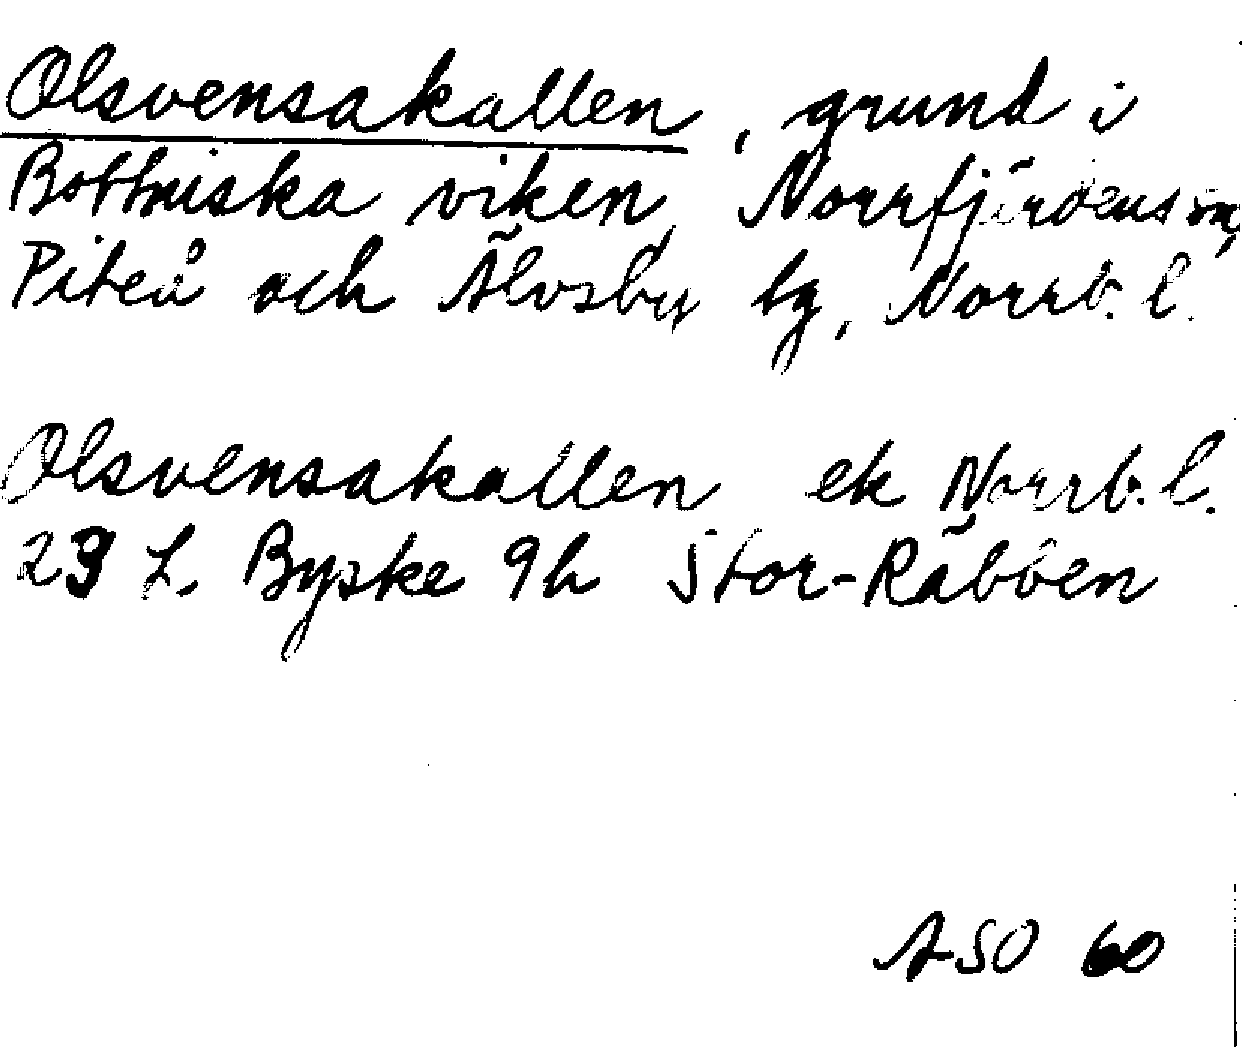 Olsvensakallen, grund i
Bottniska viken, Norrfjärdens sn,
Piteå och Älvsby tg, Norrb. l.
Olsvensakallen ek Norrb. l.
23 L, Byske 9h Stor-Räbben
ASO 60